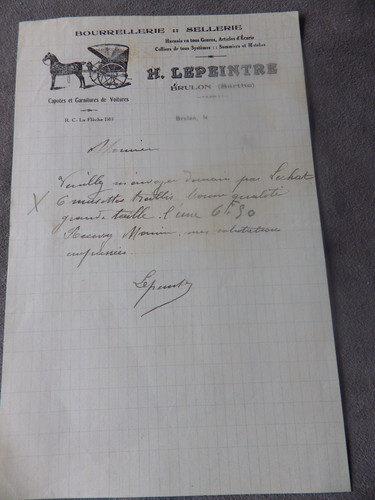 BOURRELLERIE :: SELLERIE
Harnais en tous Genres, Articles d'Écurie
Colliers de tous Systèmes :: Sommiers et Matelas
H. LEPEINTRE
BRULON (Sarthe)
Capotes et Garnitures de Voitures
R. C. La Flèche 1315
Brulon, le
Monsieur
Veuillez m'envoyer demain par
6 musettes bonne qualité
grande taille l'une 6f50
Recevez Monsieur mes salutations
empressées
Lepeintre